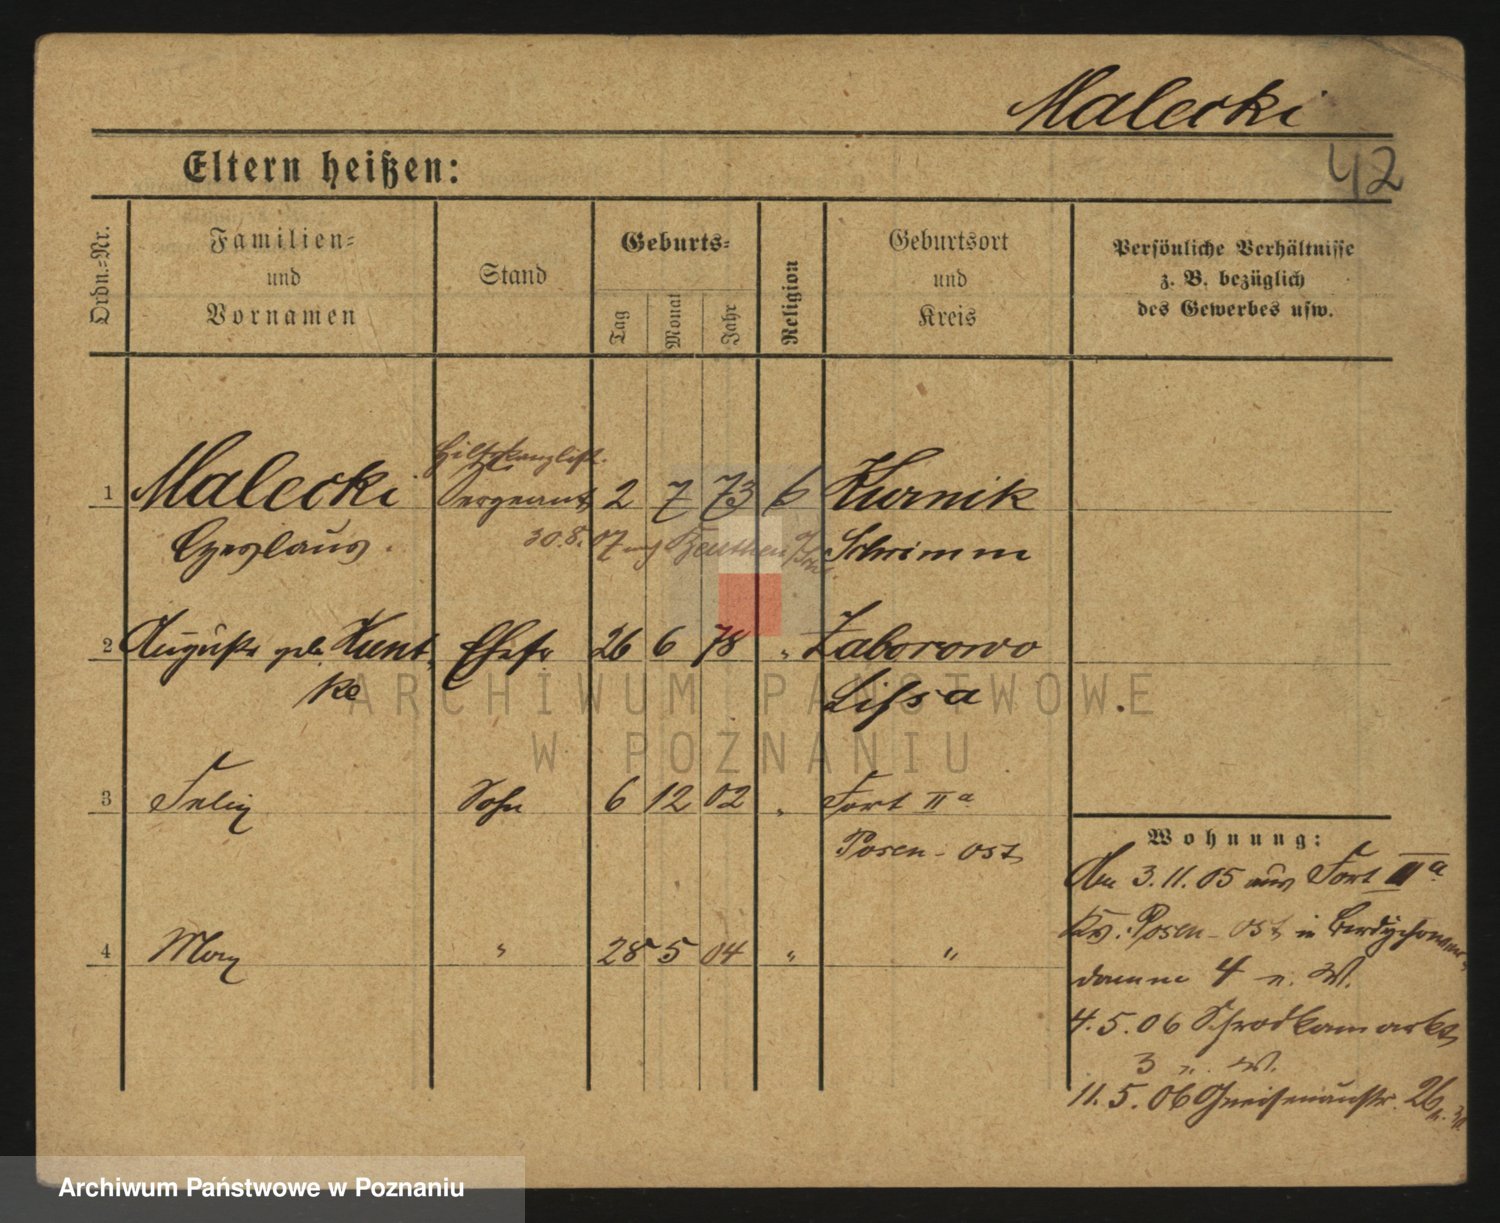 Malecki
42
Eltern heißen:
Ordn.-Nr.
Familien-
und
Vornamen
Stand
Geburts-
Tag
Monat
Jahr
Religion
Geburtsort
und
Kreis
Persönliche Verhältnisse
z. B. bezüglich
des Gewerbes usw.
Hilfskanzlist.
1 Malecki Sergeant 2 7 73 Kurnik
Czeslaus. Schrimm
30.8.07 Beuthen
2 Auguste geb. Kunt- Ehefr 26 6 78 " Zaborowo
ke Lissa
3 Felix Sohn 6 12 02 " Fort IIa
Posen-Ost
4 Max " 28 5 04 " "
Wohnung:
An 3.11.05 aus Fort IIa
Posen-Ost in Berdychower
damm 4 n. W.
4.5.06 Schrodkamarkt
3 n. W.
11.5.06 Gneisenaustr. 26
ARCHIWUM PAŃSTWOWE
W POZNANIU
Archiwum Państwowe w Poznaniu